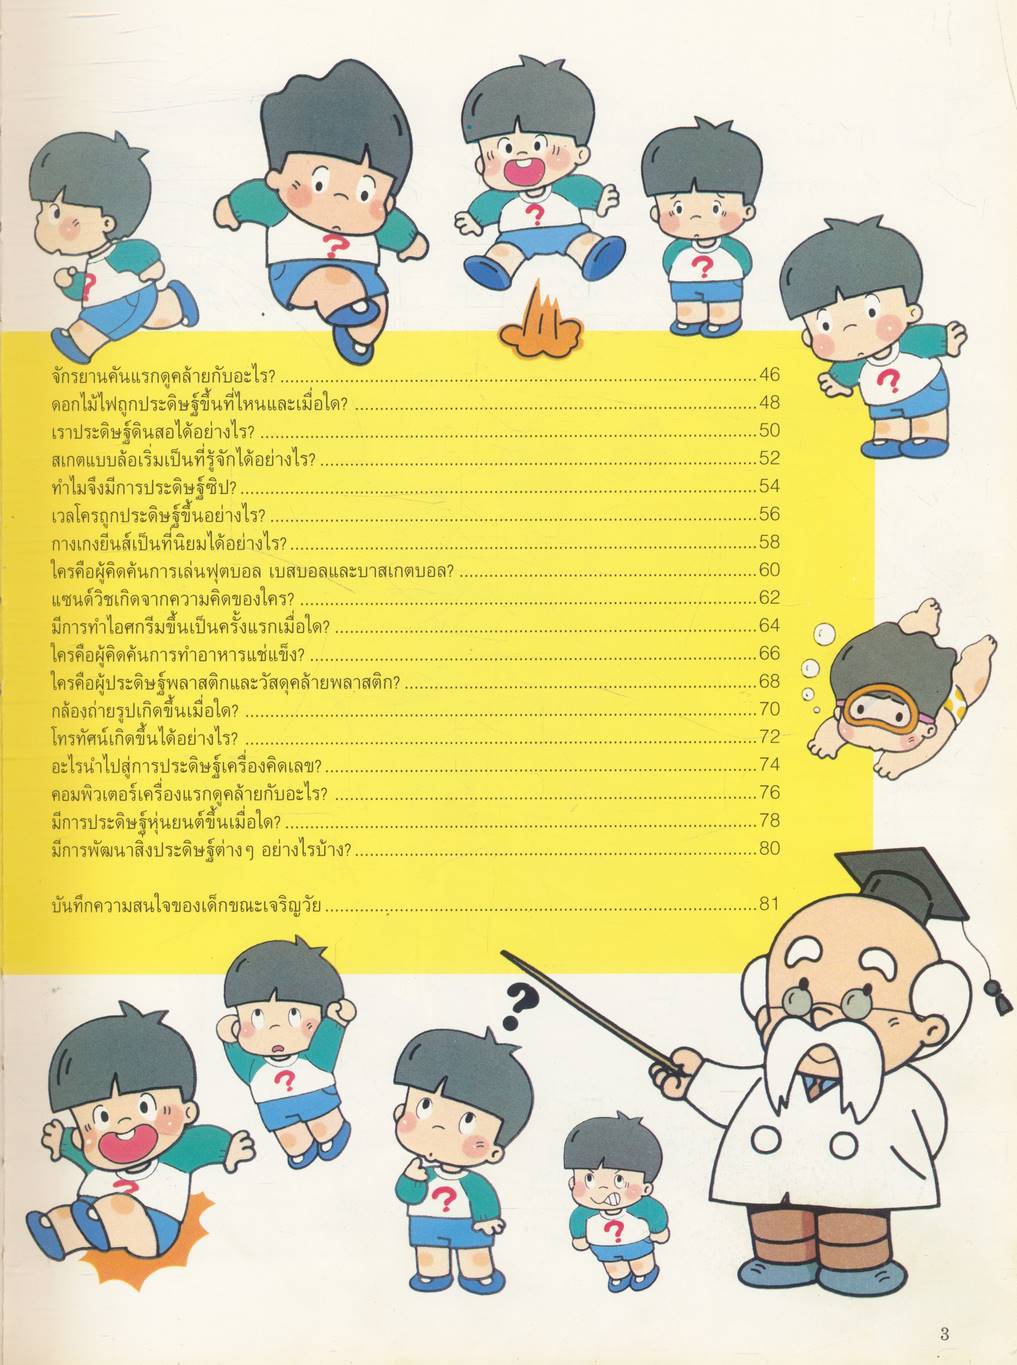 จักรยานคันแรกดูคล้ายกับอะไร? 46
ดอกไม้ไฟถูกประดิษฐ์ขึ้นที่ไหนและเมื่อใด? 48
เราประดิษฐ์ดินสอได้อย่างไร? 50
สเกตแบบล้อเริ่มเป็นที่รู้จักได้อย่างไร? 52
ทำไมจึงมีการประดิษฐ์ซิป? 54
เวลโครถูกประดิษฐ์ขึ้นอย่างไร? 56
กางเกงยีนส์เป็นที่นิยมได้อย่างไร? 58
ใครคือผู้คิดค้นการเล่นฟุตบอล เบสบอลและบาสเกตบอล? 60
แซนด์วิชเกิดจากความคิดของใคร? 62
มีการทำไอศกรีมขึ้นเป็นครั้งแรกเมื่อใด? 64
ใครคือผู้คิดค้นการทำอาหารแช่แข็ง? 66
ใครคือผู้ประดิษฐ์พลาสติกและวัสดุคล้ายพลาสติก? 68
กล้องถ่ายรูปเกิดขึ้นเมื่อใด? 70
โทรทัศน์เกิดขึ้นได้อย่างไร? 72
อะไรนำไปสู่การประดิษฐ์เครื่องคิดเลข? 74
คอมพิวเตอร์เครื่องแรกดูคล้ายกับอะไร? 76
มีการประดิษฐ์หุ่นยนต์ขึ้นเมื่อใด? 78
มีการพัฒนาสิ่งประดิษฐ์ต่างๆ อย่างไรบ้าง? 80
บันทึกความสนใจของเด็กขณะเจริญวัย 81
3